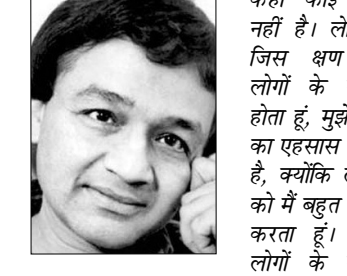 नहीं है। ले
जिस क्षण
लोगों के
होता हूं, मुझे
का एहसास
है, क्योंकि
को मैं बहुत
करता हूं।
लोगों के